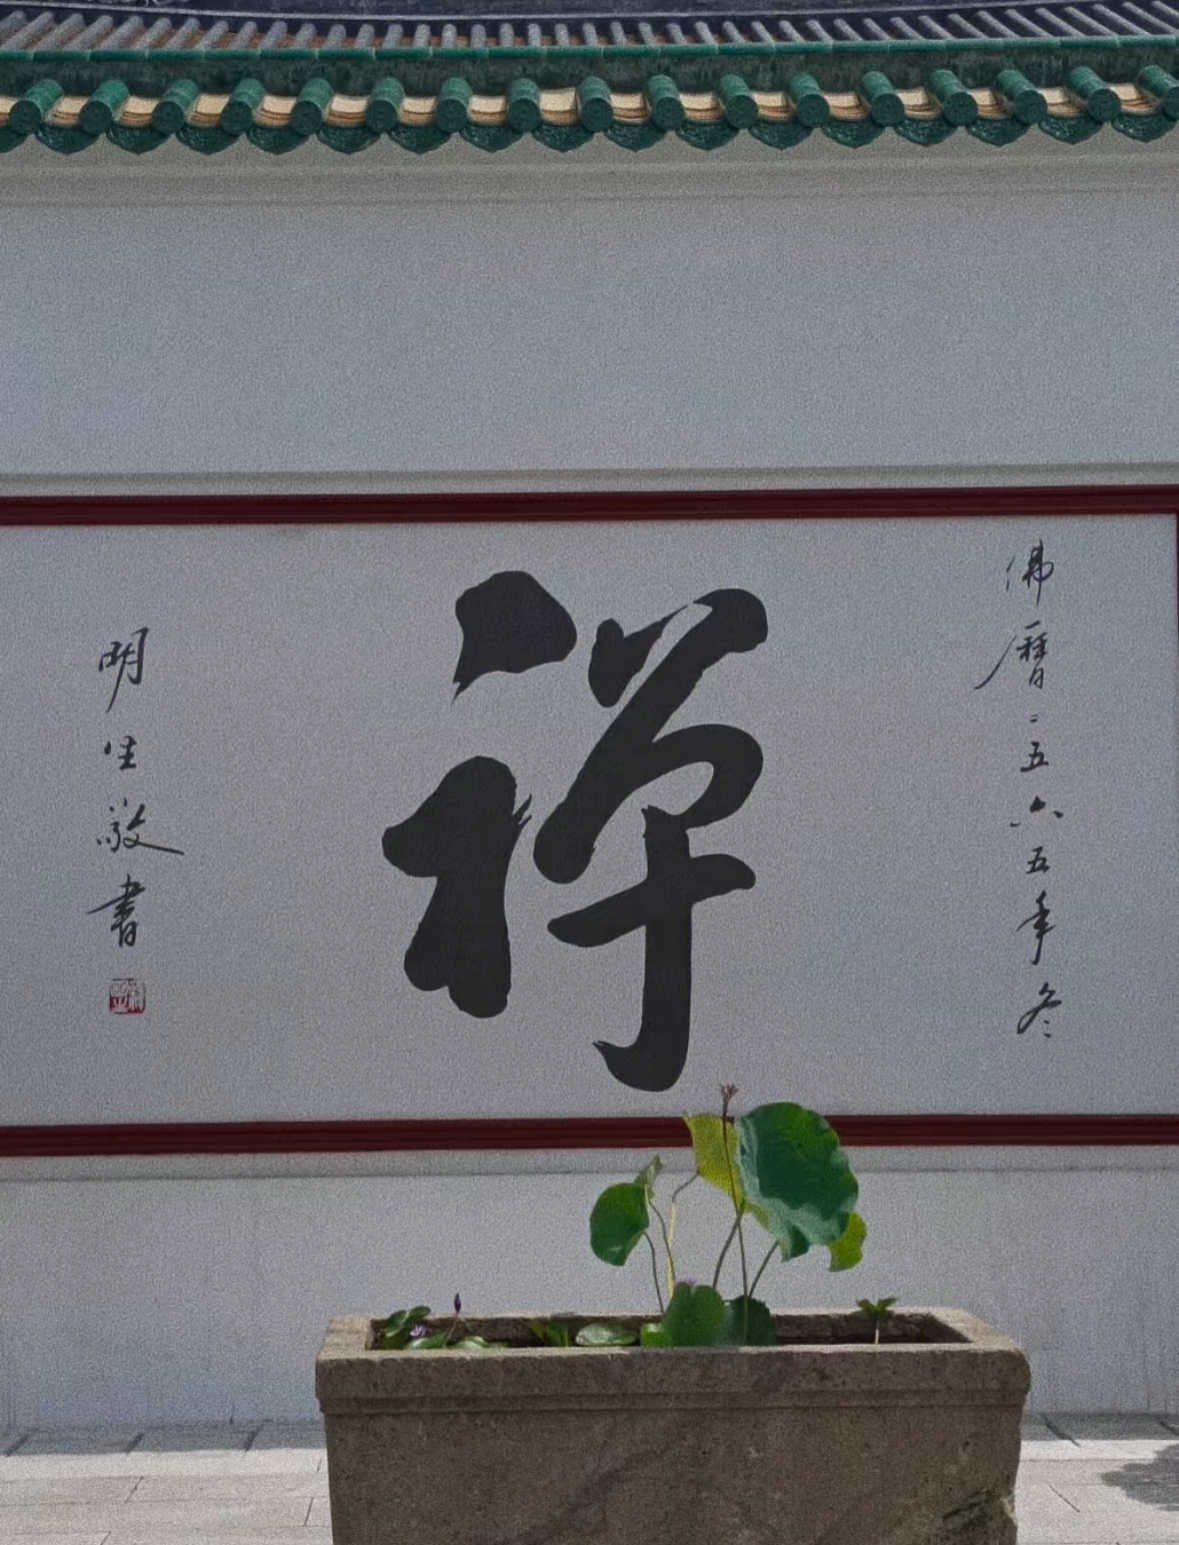 佛曆二五六五年冬
禅
明生敬書